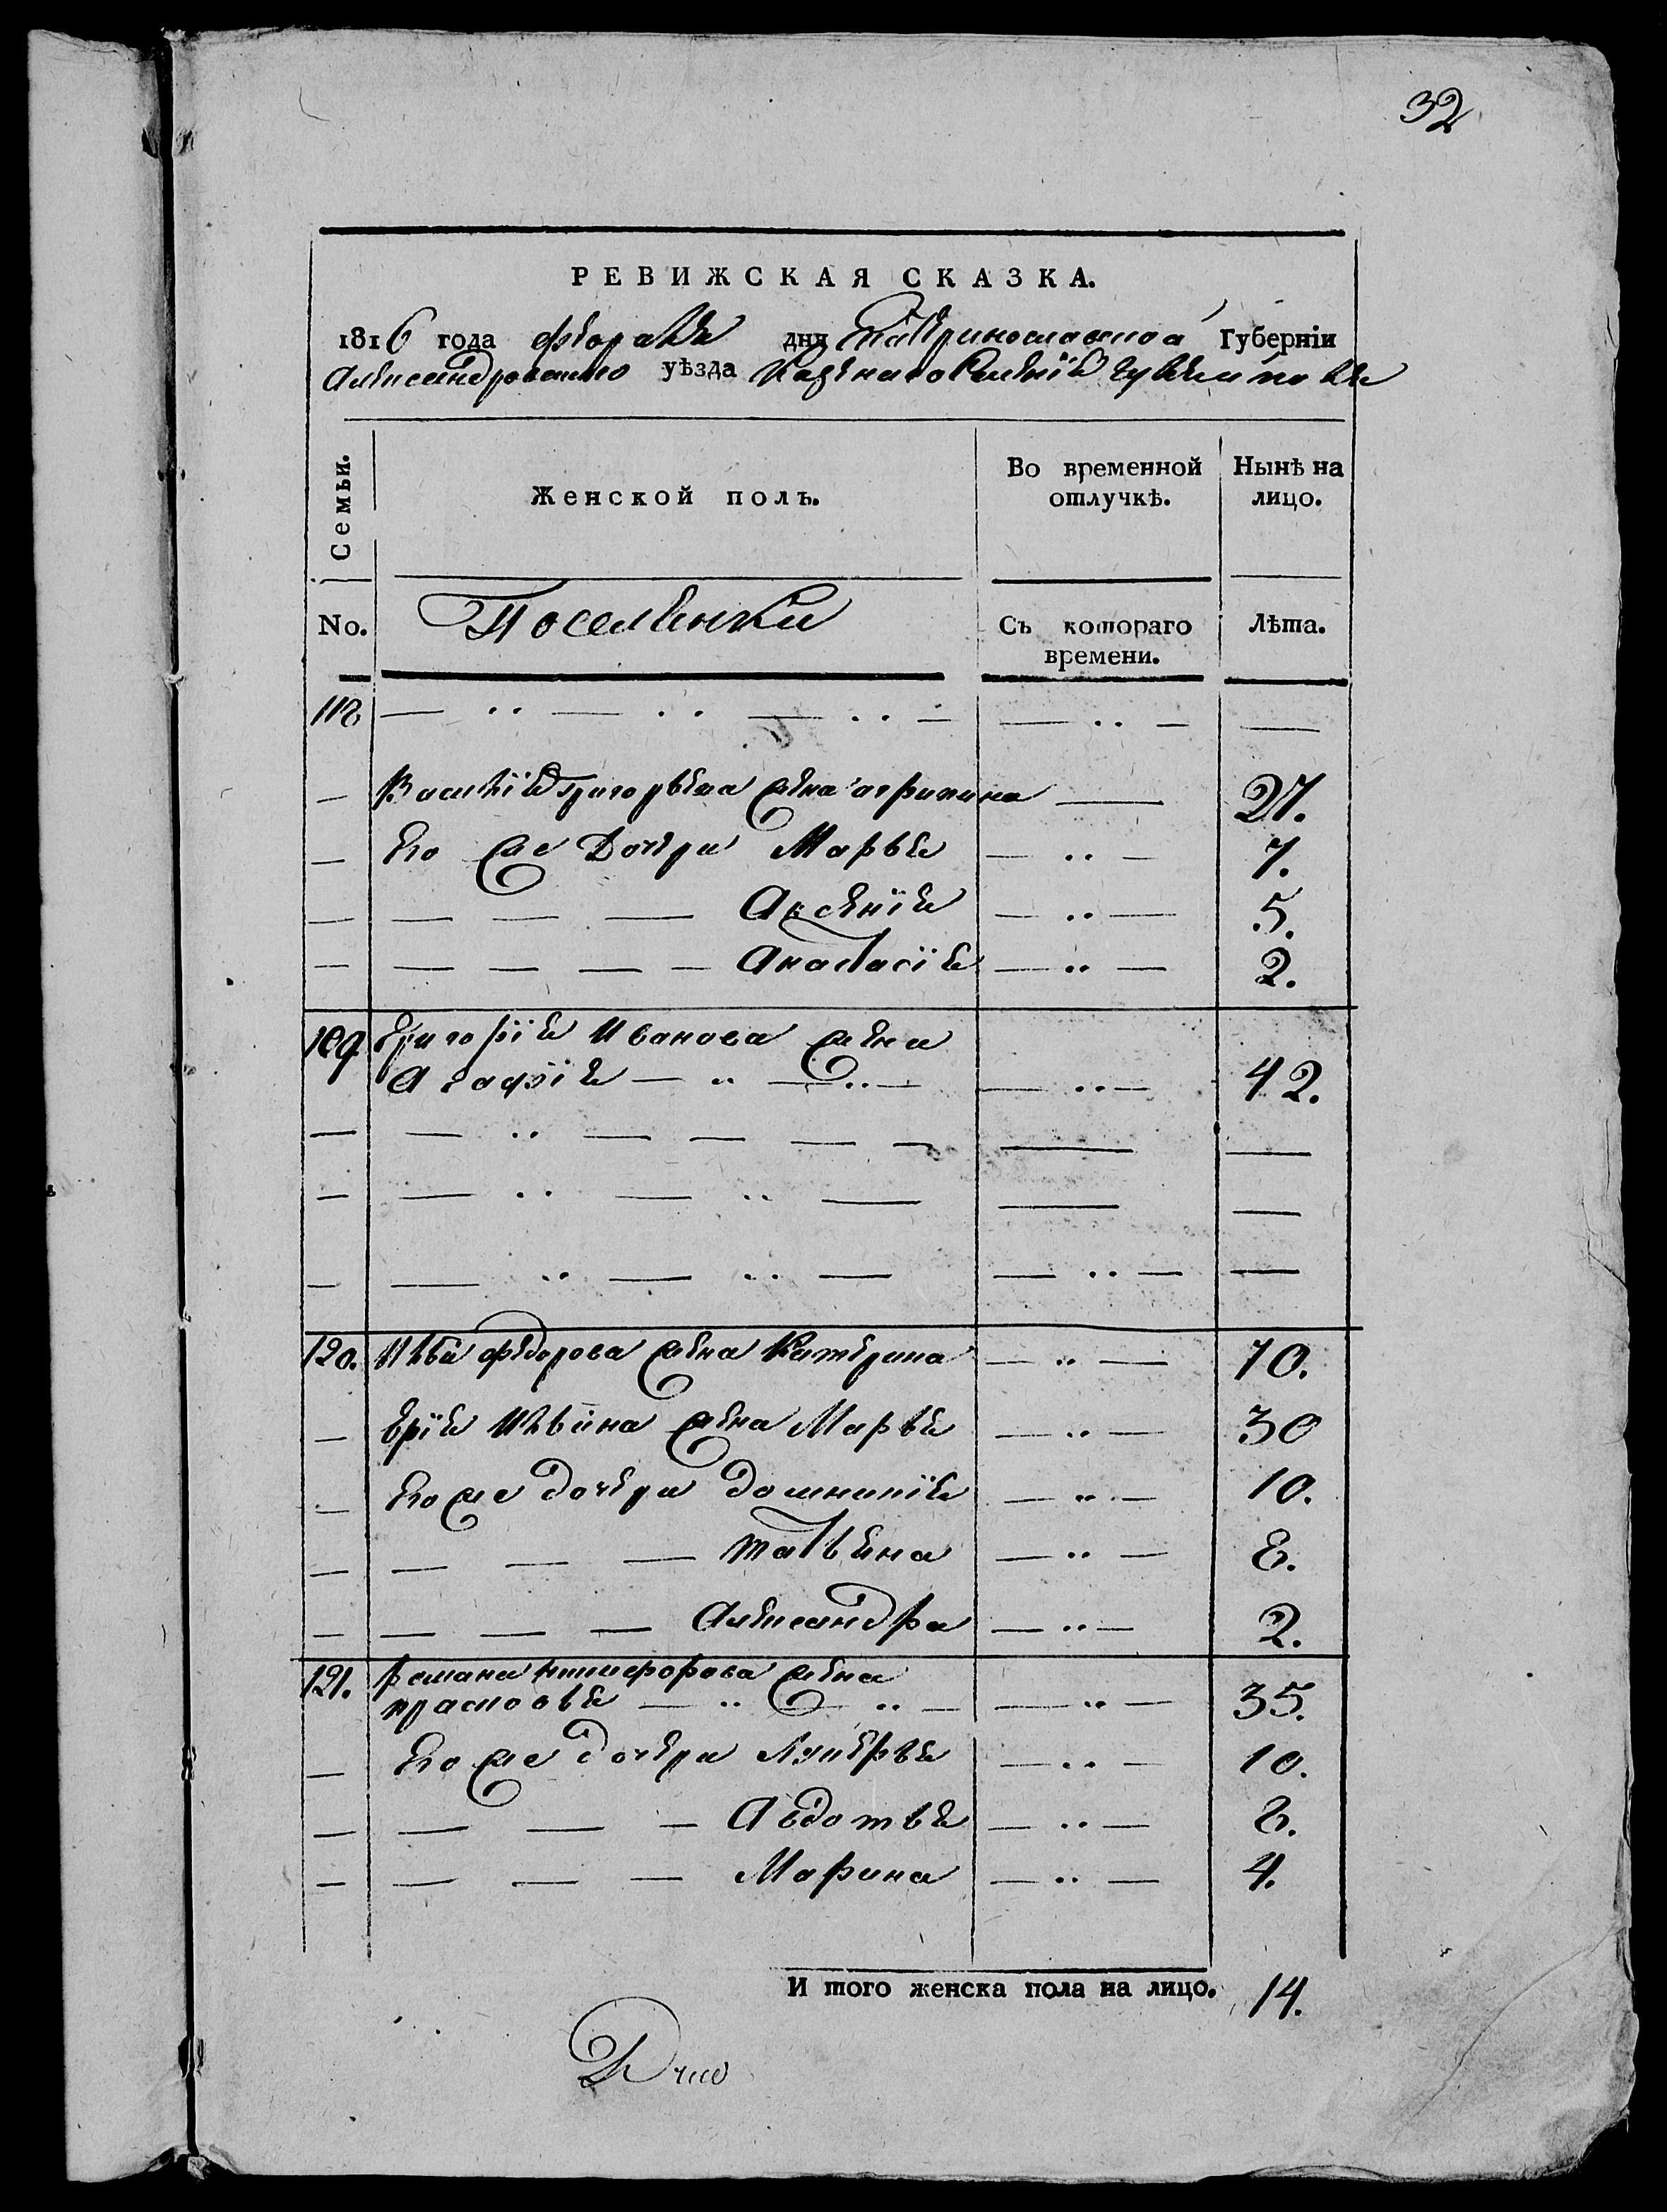 32
РЕВИЖСКАЯ СКАЗКА.
1816 года февраля дня Екатеринославской Губерніи
Александровского уѣзда Казенного Селенія
Семьи.
Женской полъ.
Во временной отлучкѣ.
Нынѣ на лицо.
No.
Поселянки
Съ котораго времени.
Лѣта.
118 — — — —
— Василія Григорьева жена агрипина — 27.
— Его же Дочери Марья — 7.
— — — — Аксенія — 5.
— — — — Анастасія — 2.
Григорія Иванова жена
Агафія — 42.
— — — —
— — — —
— — — —
120. федорова жена Катерина — 70.
— жена Марья — 30
— Его же дочери домникія — 10.
— — — — татьяна — 8.
— — — — Александра — 2.
121. романа никифорова жена
прасковья — 35.
— Его же дочери Лукерья — 10.
— — — — Авдотья — 8.
— — — — Марина — 4.
И того женска пола на лицо. 14.